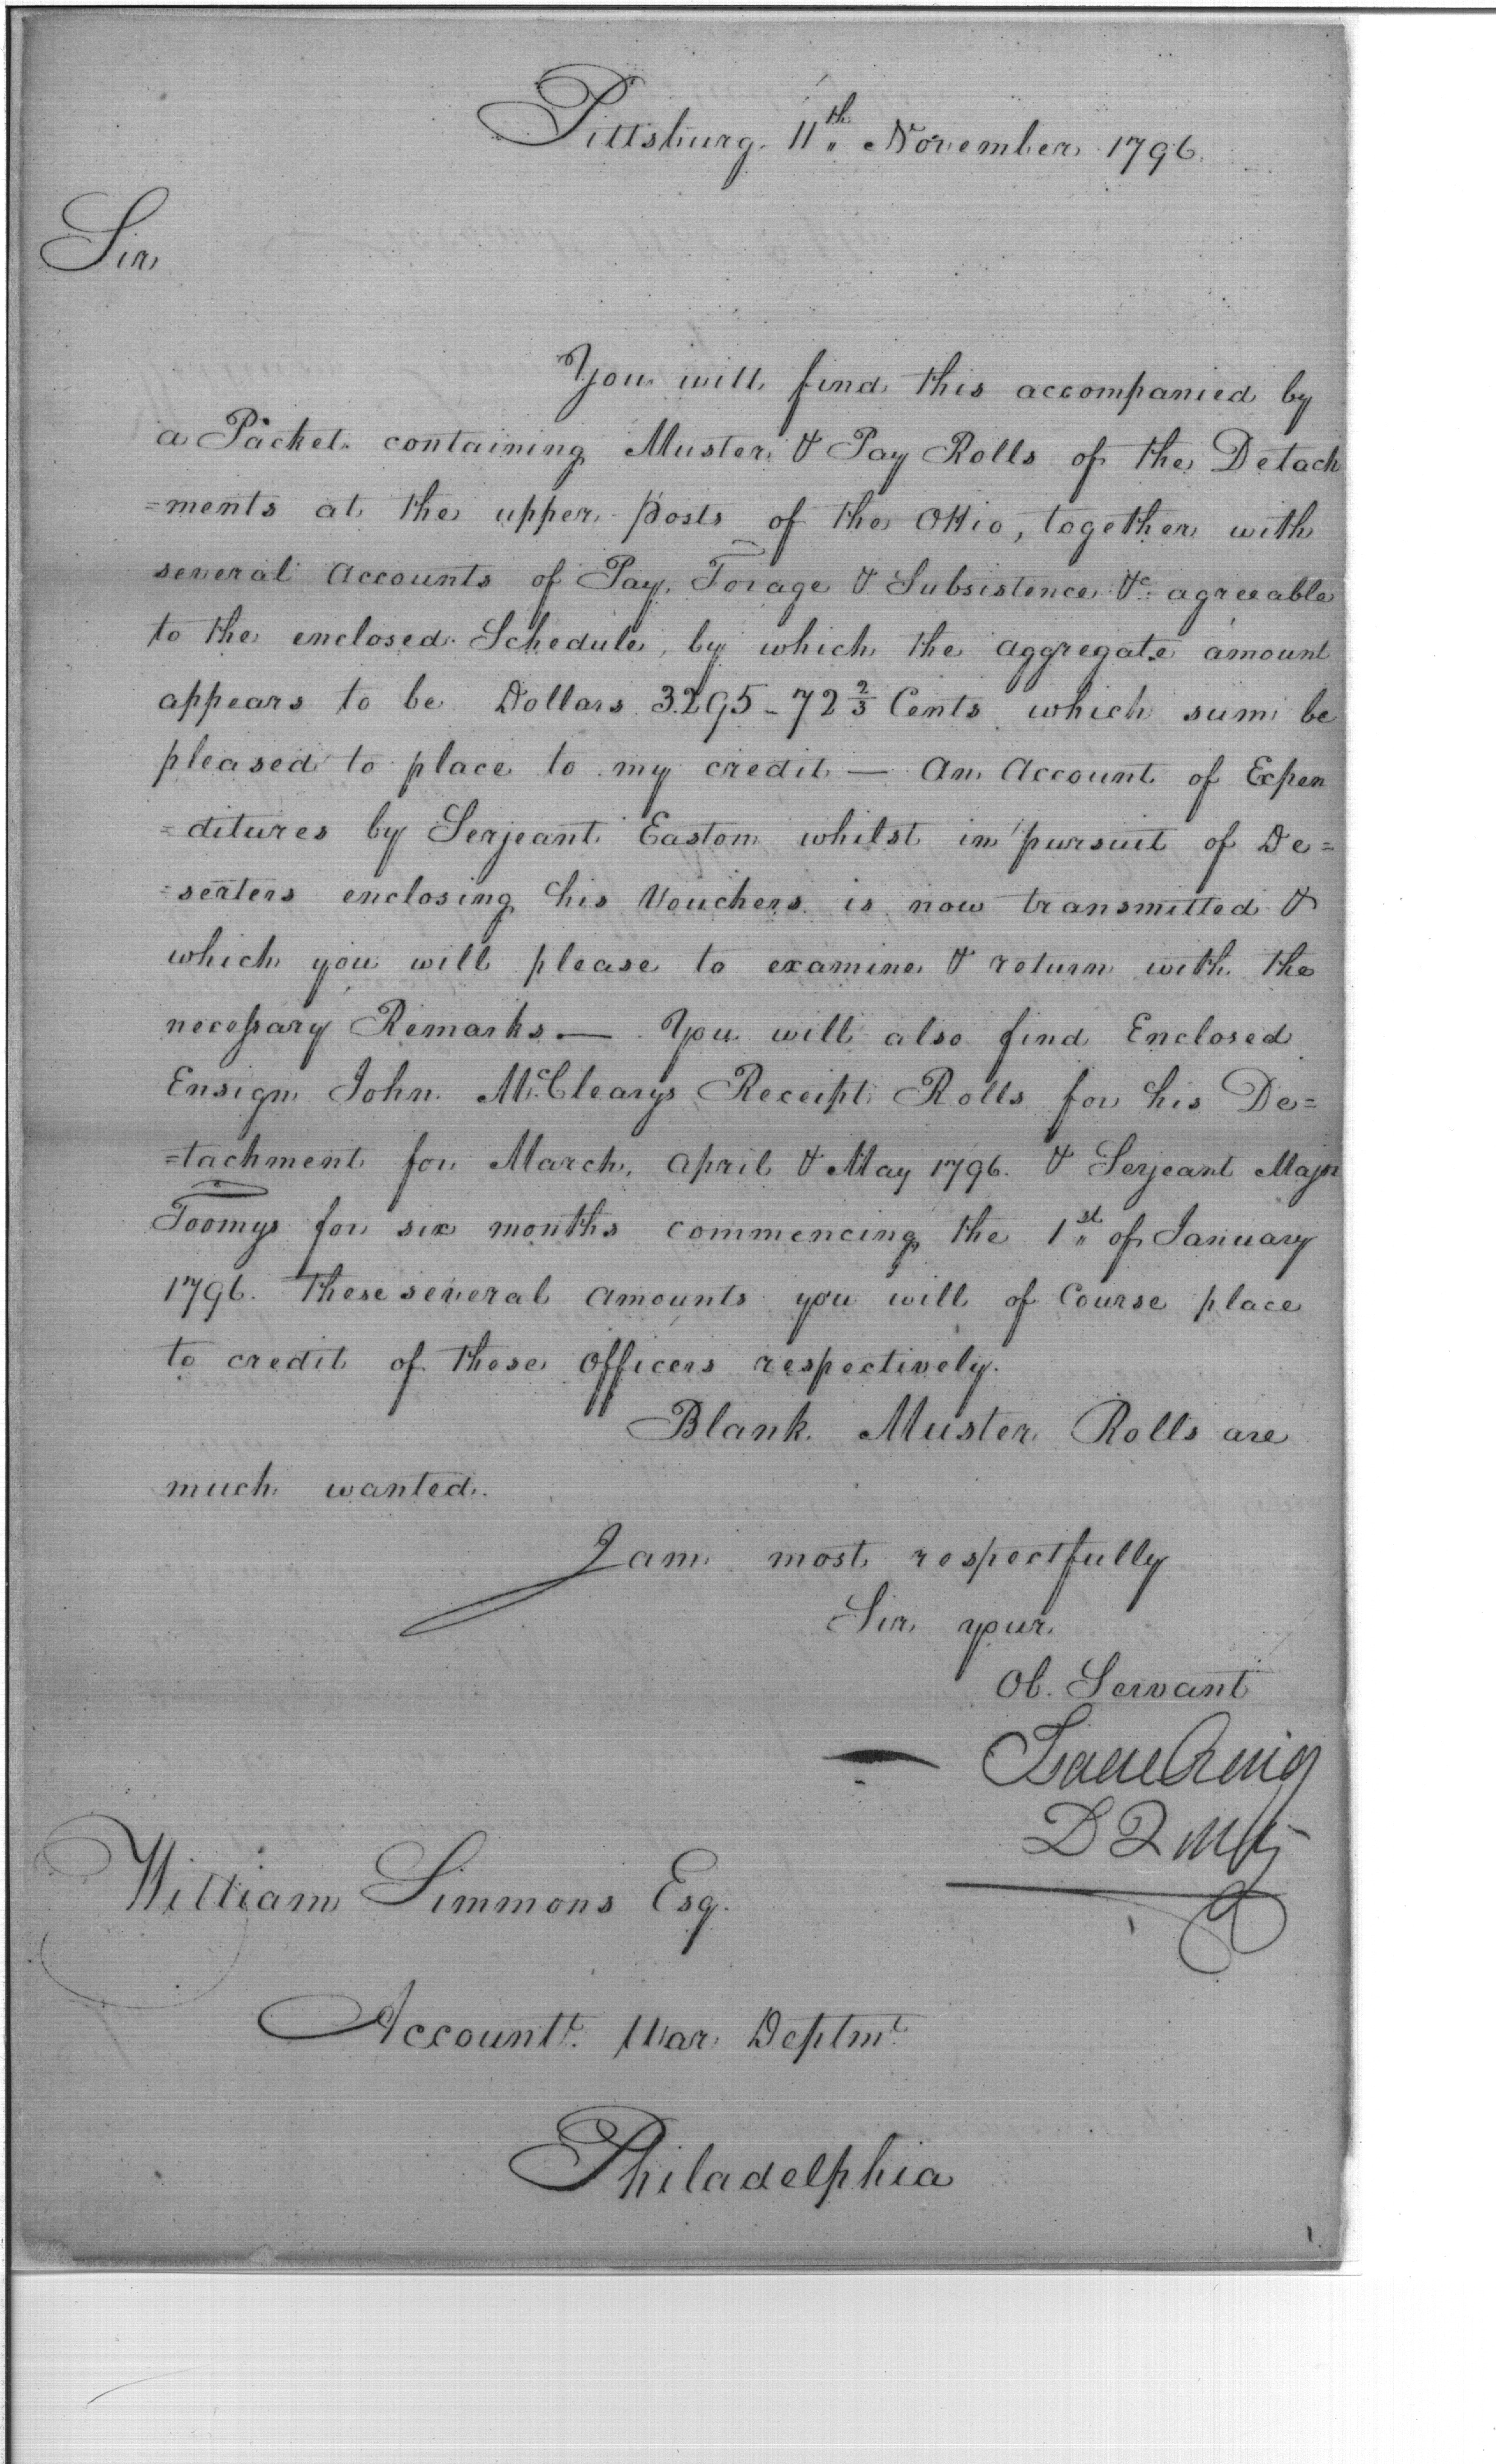 Pittsburg. 11th November 1796.
Sir
You will find this accompanied by
a Packet containing Muster & Pay Rolls of the Detach
=ments at the upper posts of the Ohio, together with
several Accounts of Pay, Forage & Subsistence &c agreeable
to the enclosed Schedule, by which the aggregate amount
appears to be Dollars 3295-72 2/3 Cents which sum be
pleased to place to my credit — An Account of Expen
=ditures by Serjeant Easton whilst in pursuit of De=
=serters enclosing his Vouchers is now transmitted &
which you will please to examine & return with the
necessary Remarks — You will also find Enclosed
Ensign John McClearys Receipt Rolls for his De=
=tachment for March, April & May 1796. & Serjeant Major
Toomys for six months commencing the 1st of January
1796. These several amounts you will of Course place
to credit of those Officers respectively.
Blank Muster Rolls are
much wanted.
I am most respectfully
Sir your
Ob. Servant
Isaac Craig
D Q M G
William Simmons Esq.
Accountt. War Deptmt.
Philadelphia